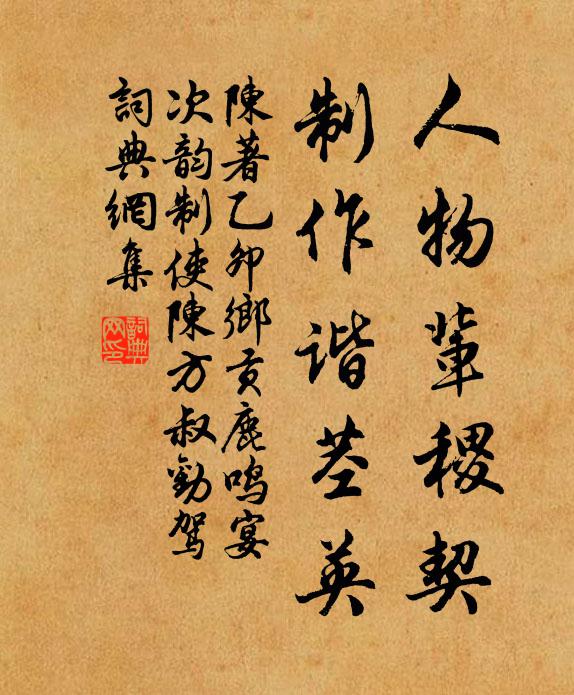 人物輩稷契
制作谐茎英
陳著乙卯鄉貢鹿鸣宴
次韵制使陳方叔勸駕
詞典網集
詞典网印